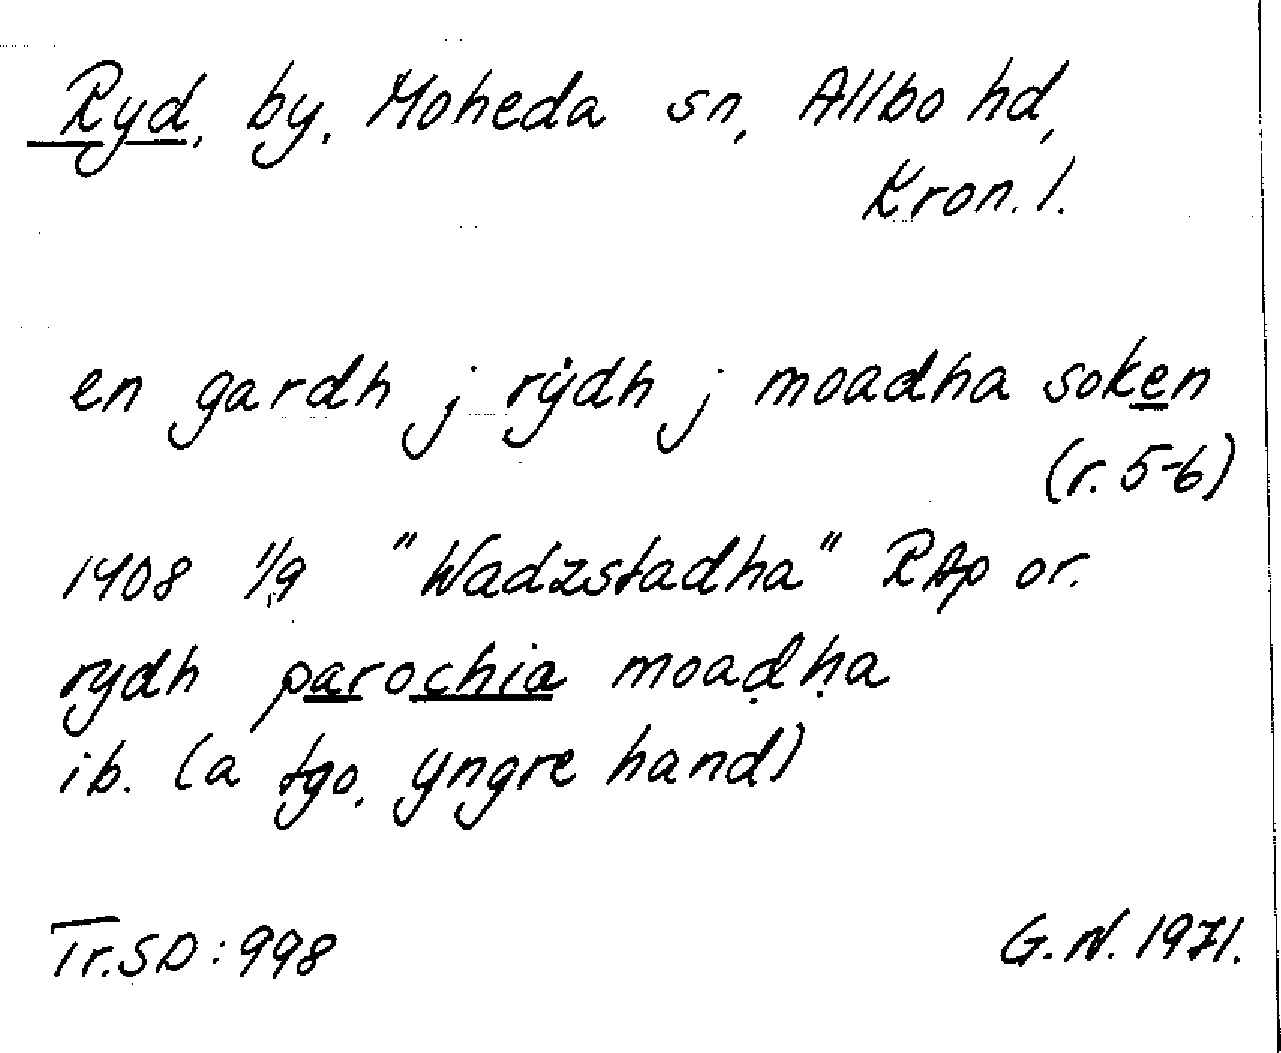 Ryd, by, Moheda sn, Allbo hd,
Kron. l.
en gardh j rẏdh j moadha soken
(r. 5-6)
1408 1/9 "Wadzstadha" RAp or.
rydh parochia moaḍḥa
ib. (a tgo, yngre hand)
Tr. SD: 998
G. N. 1971.